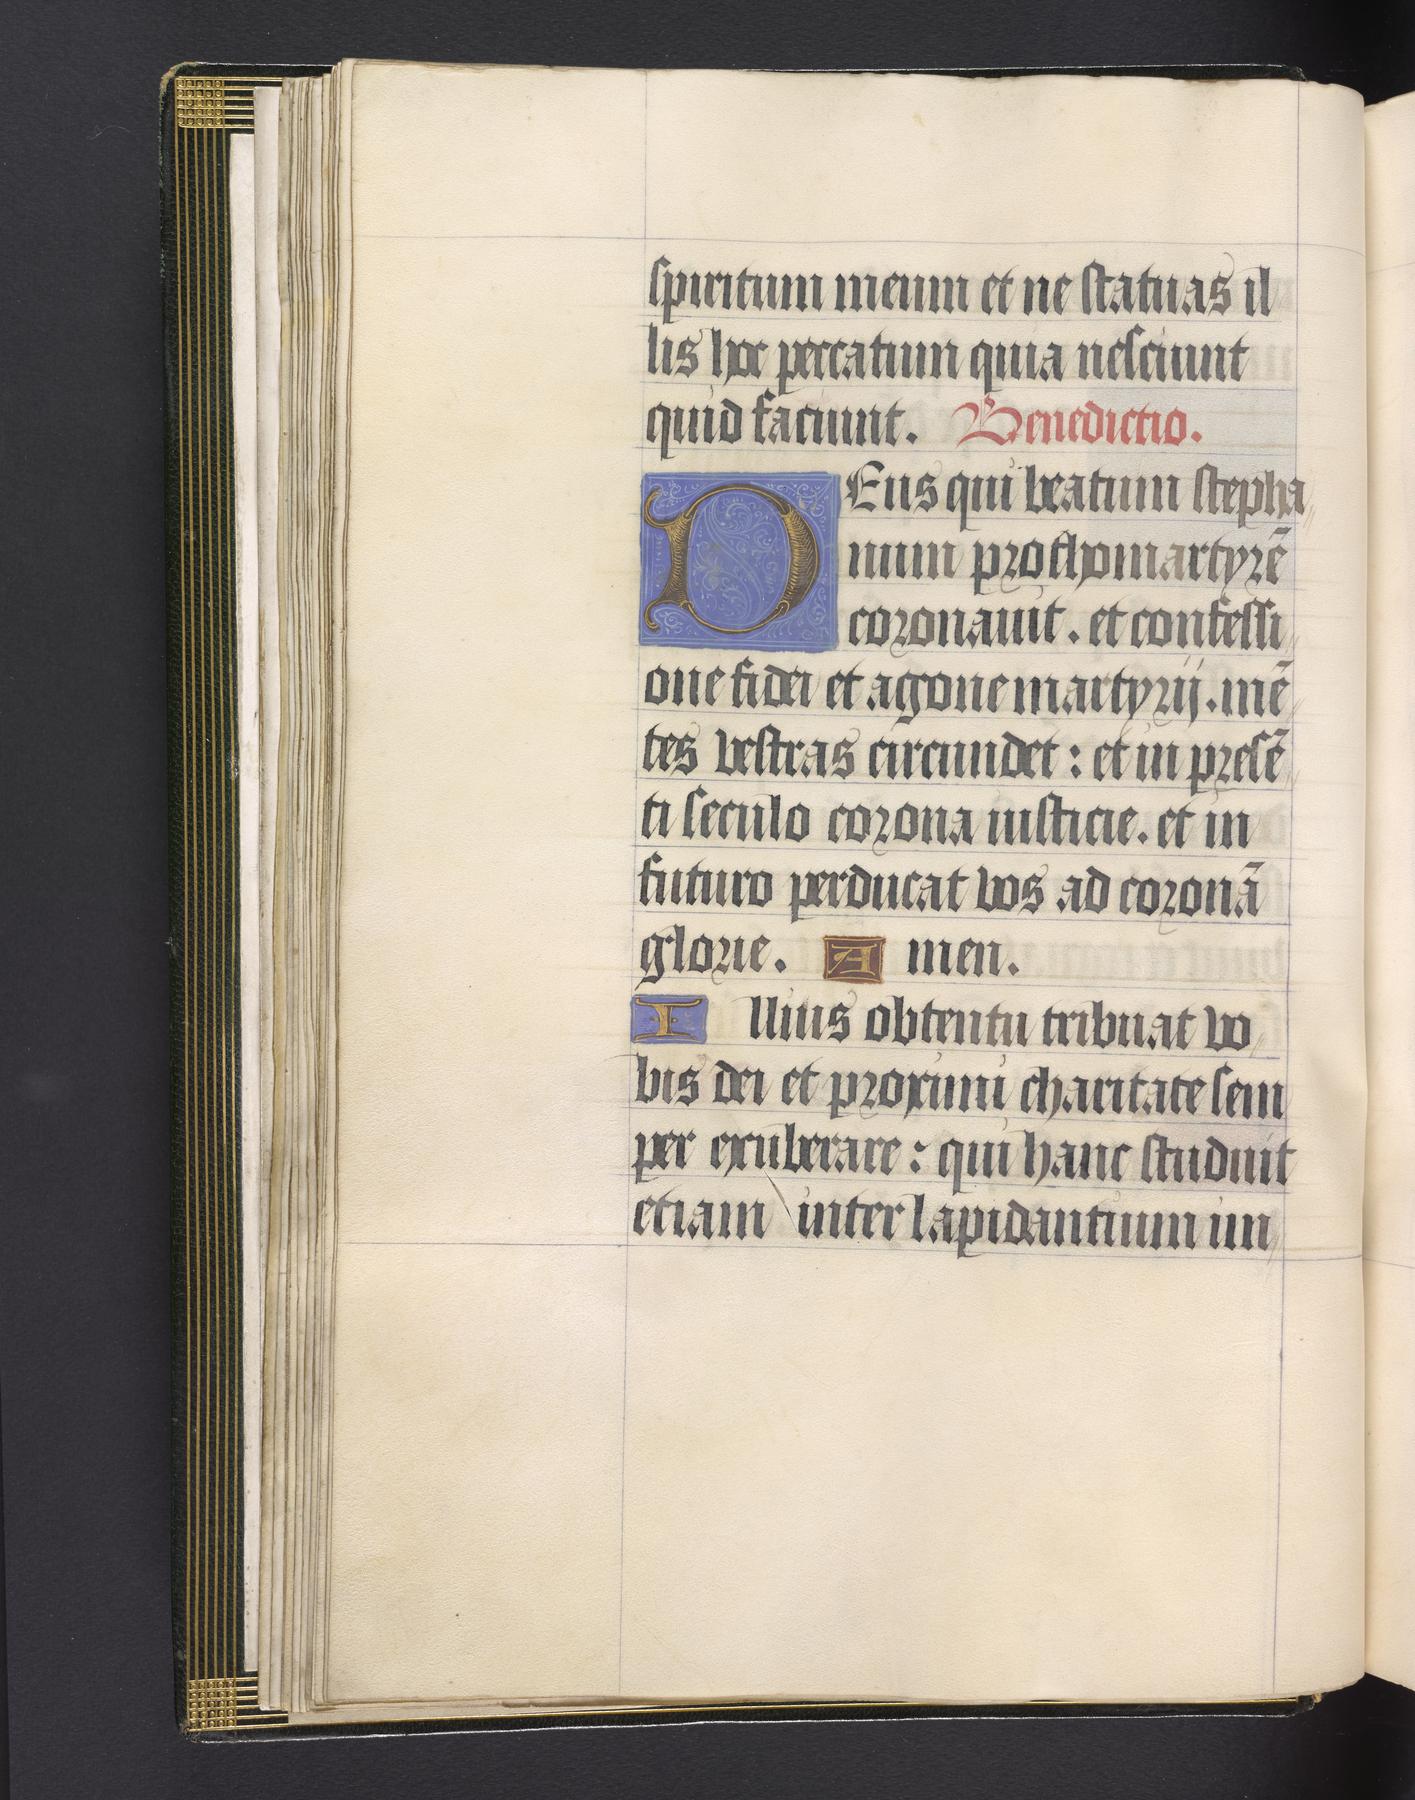 spiritum meum et ne statuas il
lis hoc peccatum quia nesciunt
quid faciunt. Benedictio.
DEus qui beatum stepha
num prothomartyrē
coronauit. et confessi
one fidei et agone martyrij. mē
tes vestras circundet : et in presē
ti seculo corona iusticie. et in
futuro perducat vos ad coronā
glorie. Amen.
Illius obtentu tribuat vo
bis dei et proximi charitate sem
per exuberare : qui hanc studuit
etiam inter lapidantium im